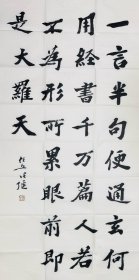 一言半句便通玄何
用經書千萬篇人若
不為形所累眼前即
是大羅天